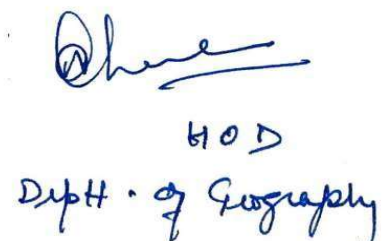 HOD
Deptt. of Geography